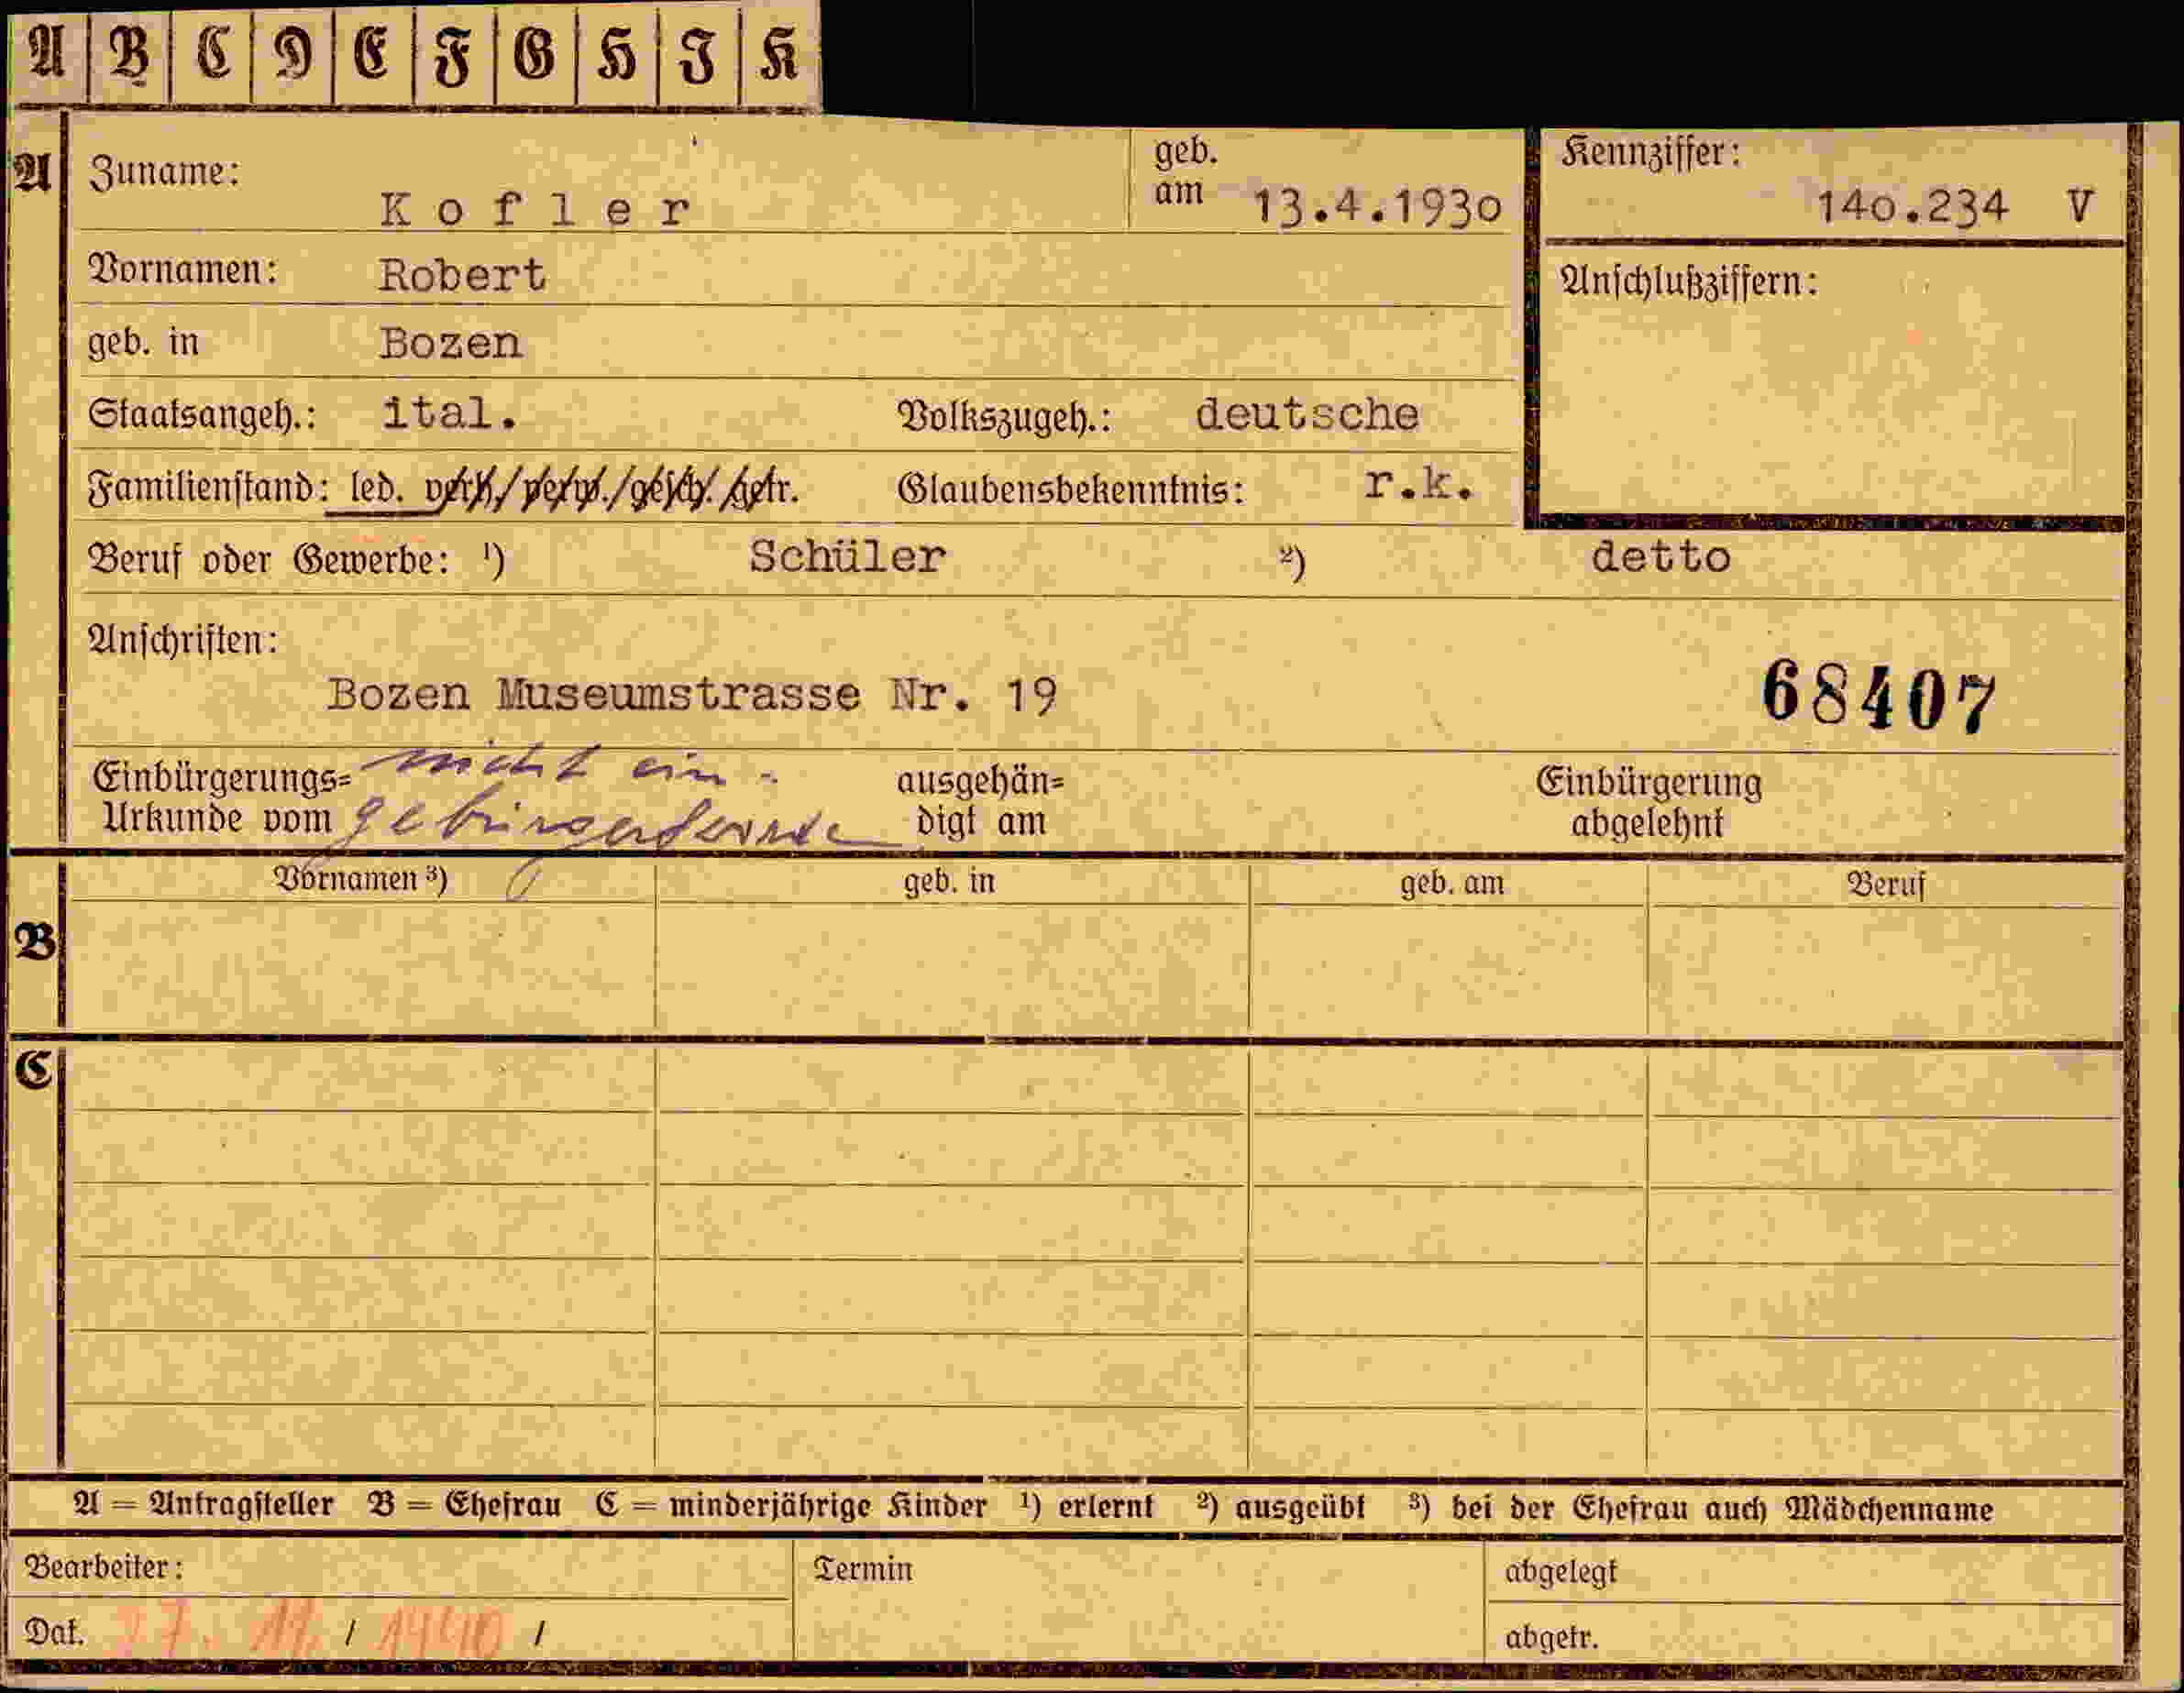 A B C D E F G H J K
A Zuname: Kofler geb. am 13.4.1930 Kennziffer: 14o.234 V
Vornamen: Robert Anschlußziffern:
geb. in Bozen
Staatsangeh.: ital. Volkszugeh.: deutsche
Familienstand: led. verh./verw./gesch./getr. Glaubensbekenntnis: r.k.
Beruf oder Gewerbe: ¹) Schüler ²) detto
Anschriften:
Bozen Museumstrasse Nr. 19 68407
Einbürgerungs= nicht ein- ausgehän= Einbürgerung
Urkunde vom digt am abgelehnt
Vornamen ³) geb. in geb. am Beruf
B
C
A = Antragsteller B = Ehefrau C = minderjährige Kinder ¹) erlernt ²) ausgeübt ³) bei der Ehefrau auch Mädchenname
Bearbeiter: Termin abgelegt
Dat. 27. 11. / 1940 / abgetr.